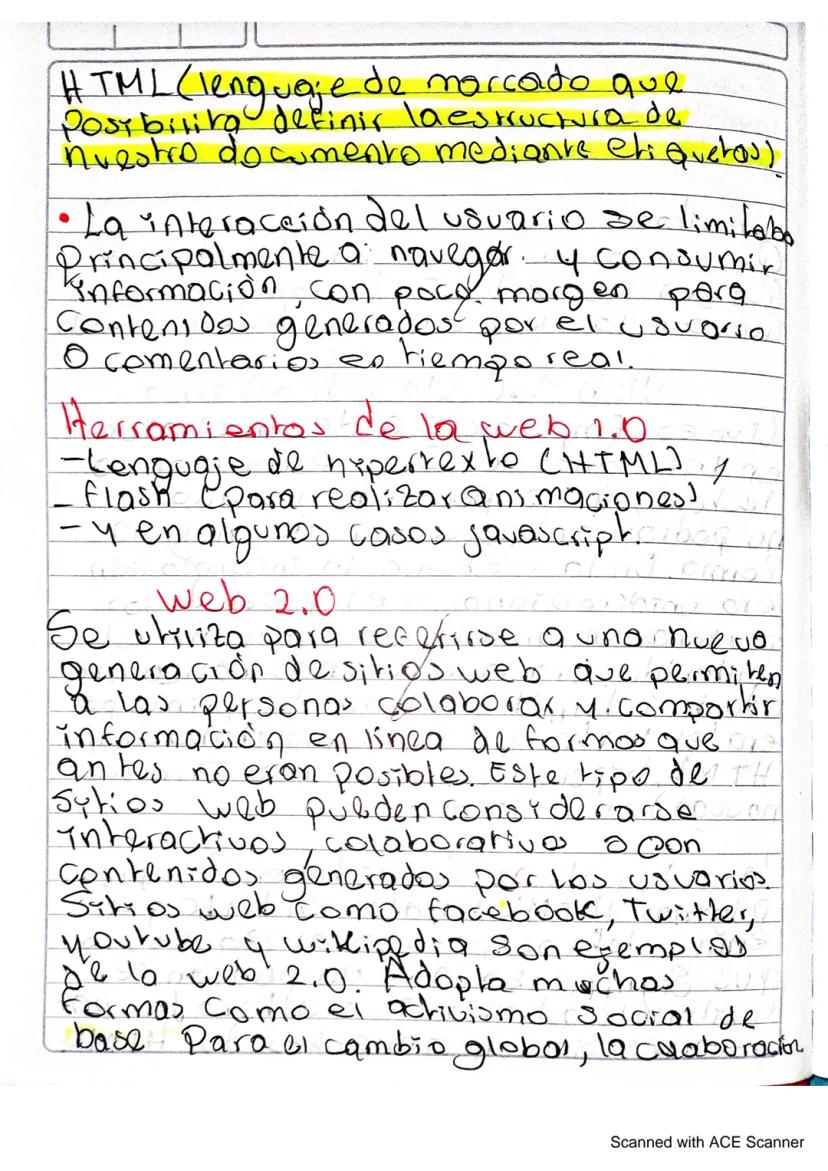 HTML (lenguaje de marcado que
Posibilita definir la estructura de
nuestro documento mediante etiquetas).
• La interacción del usuario se limitaba
Principalmente a navegar y consumir
información, con poco margen para
contenidos generados por el usuario
O comentarios en tiempo real.
Herramientas de la web 1.0
-Lenguaje de hipertexto (HTML) y
- flash (para realizar animaciones)
- y en algunos casos javascript.
Web 2.0
Se utiliza para referirse a una nueva
generación de sitios web que permiten
a las personas colaborar y compartir
información en línea de formas que
antes no eran posibles. Este tipo de
Sitios web pueden considerarse
interactivos, colaborativos o con
contenidos generados por los usuarios.
Sitios web como facebook, Twitter,
youtube y wikipedia son ejemplos
de la web 2.0. Adopta muchas
formas como el activismo social de
base Para el cambio global, la colaboración
Scanned with ACE Scanner